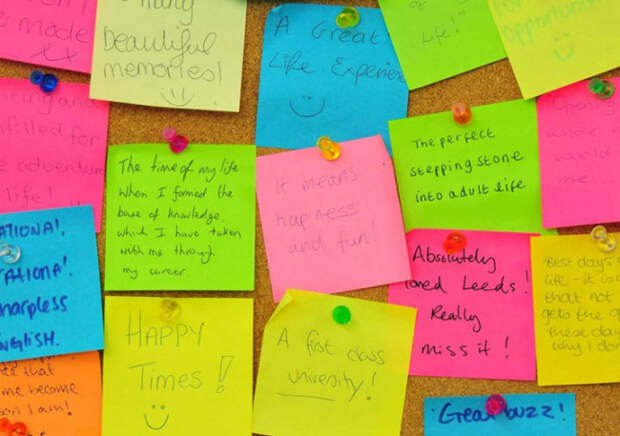 made
many
beautiful
memories!
A Great
Life Experien
of
Life!
for
opportunity
and
nfilled for
e adventure
life!
The time of my life
when I formed the
base of knowledge
which I have taken
with me through
my career.
It means
happiness
and fun!
The perfect
stepping stone
into adult life
Opening
whole
world
me
ATIONAL,
ATIONAL
harpless
NGLISH.
Absolutely
loved Leeds!
Really
miss it!
Best days o
life - it is
that not
gets the op
these day
why I don
HAPPY
TIMES!
A first class
university!
that
me become
son I am!
Great buzz!